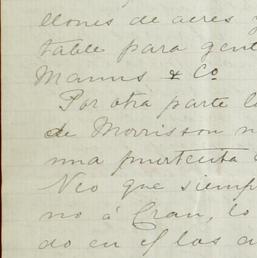 llones de acres y
table para gent
Manns & Co
Por otra parte l
de Morrisson n
una puertecita
Veo que siemp
no á Cran, lo
do en él las a